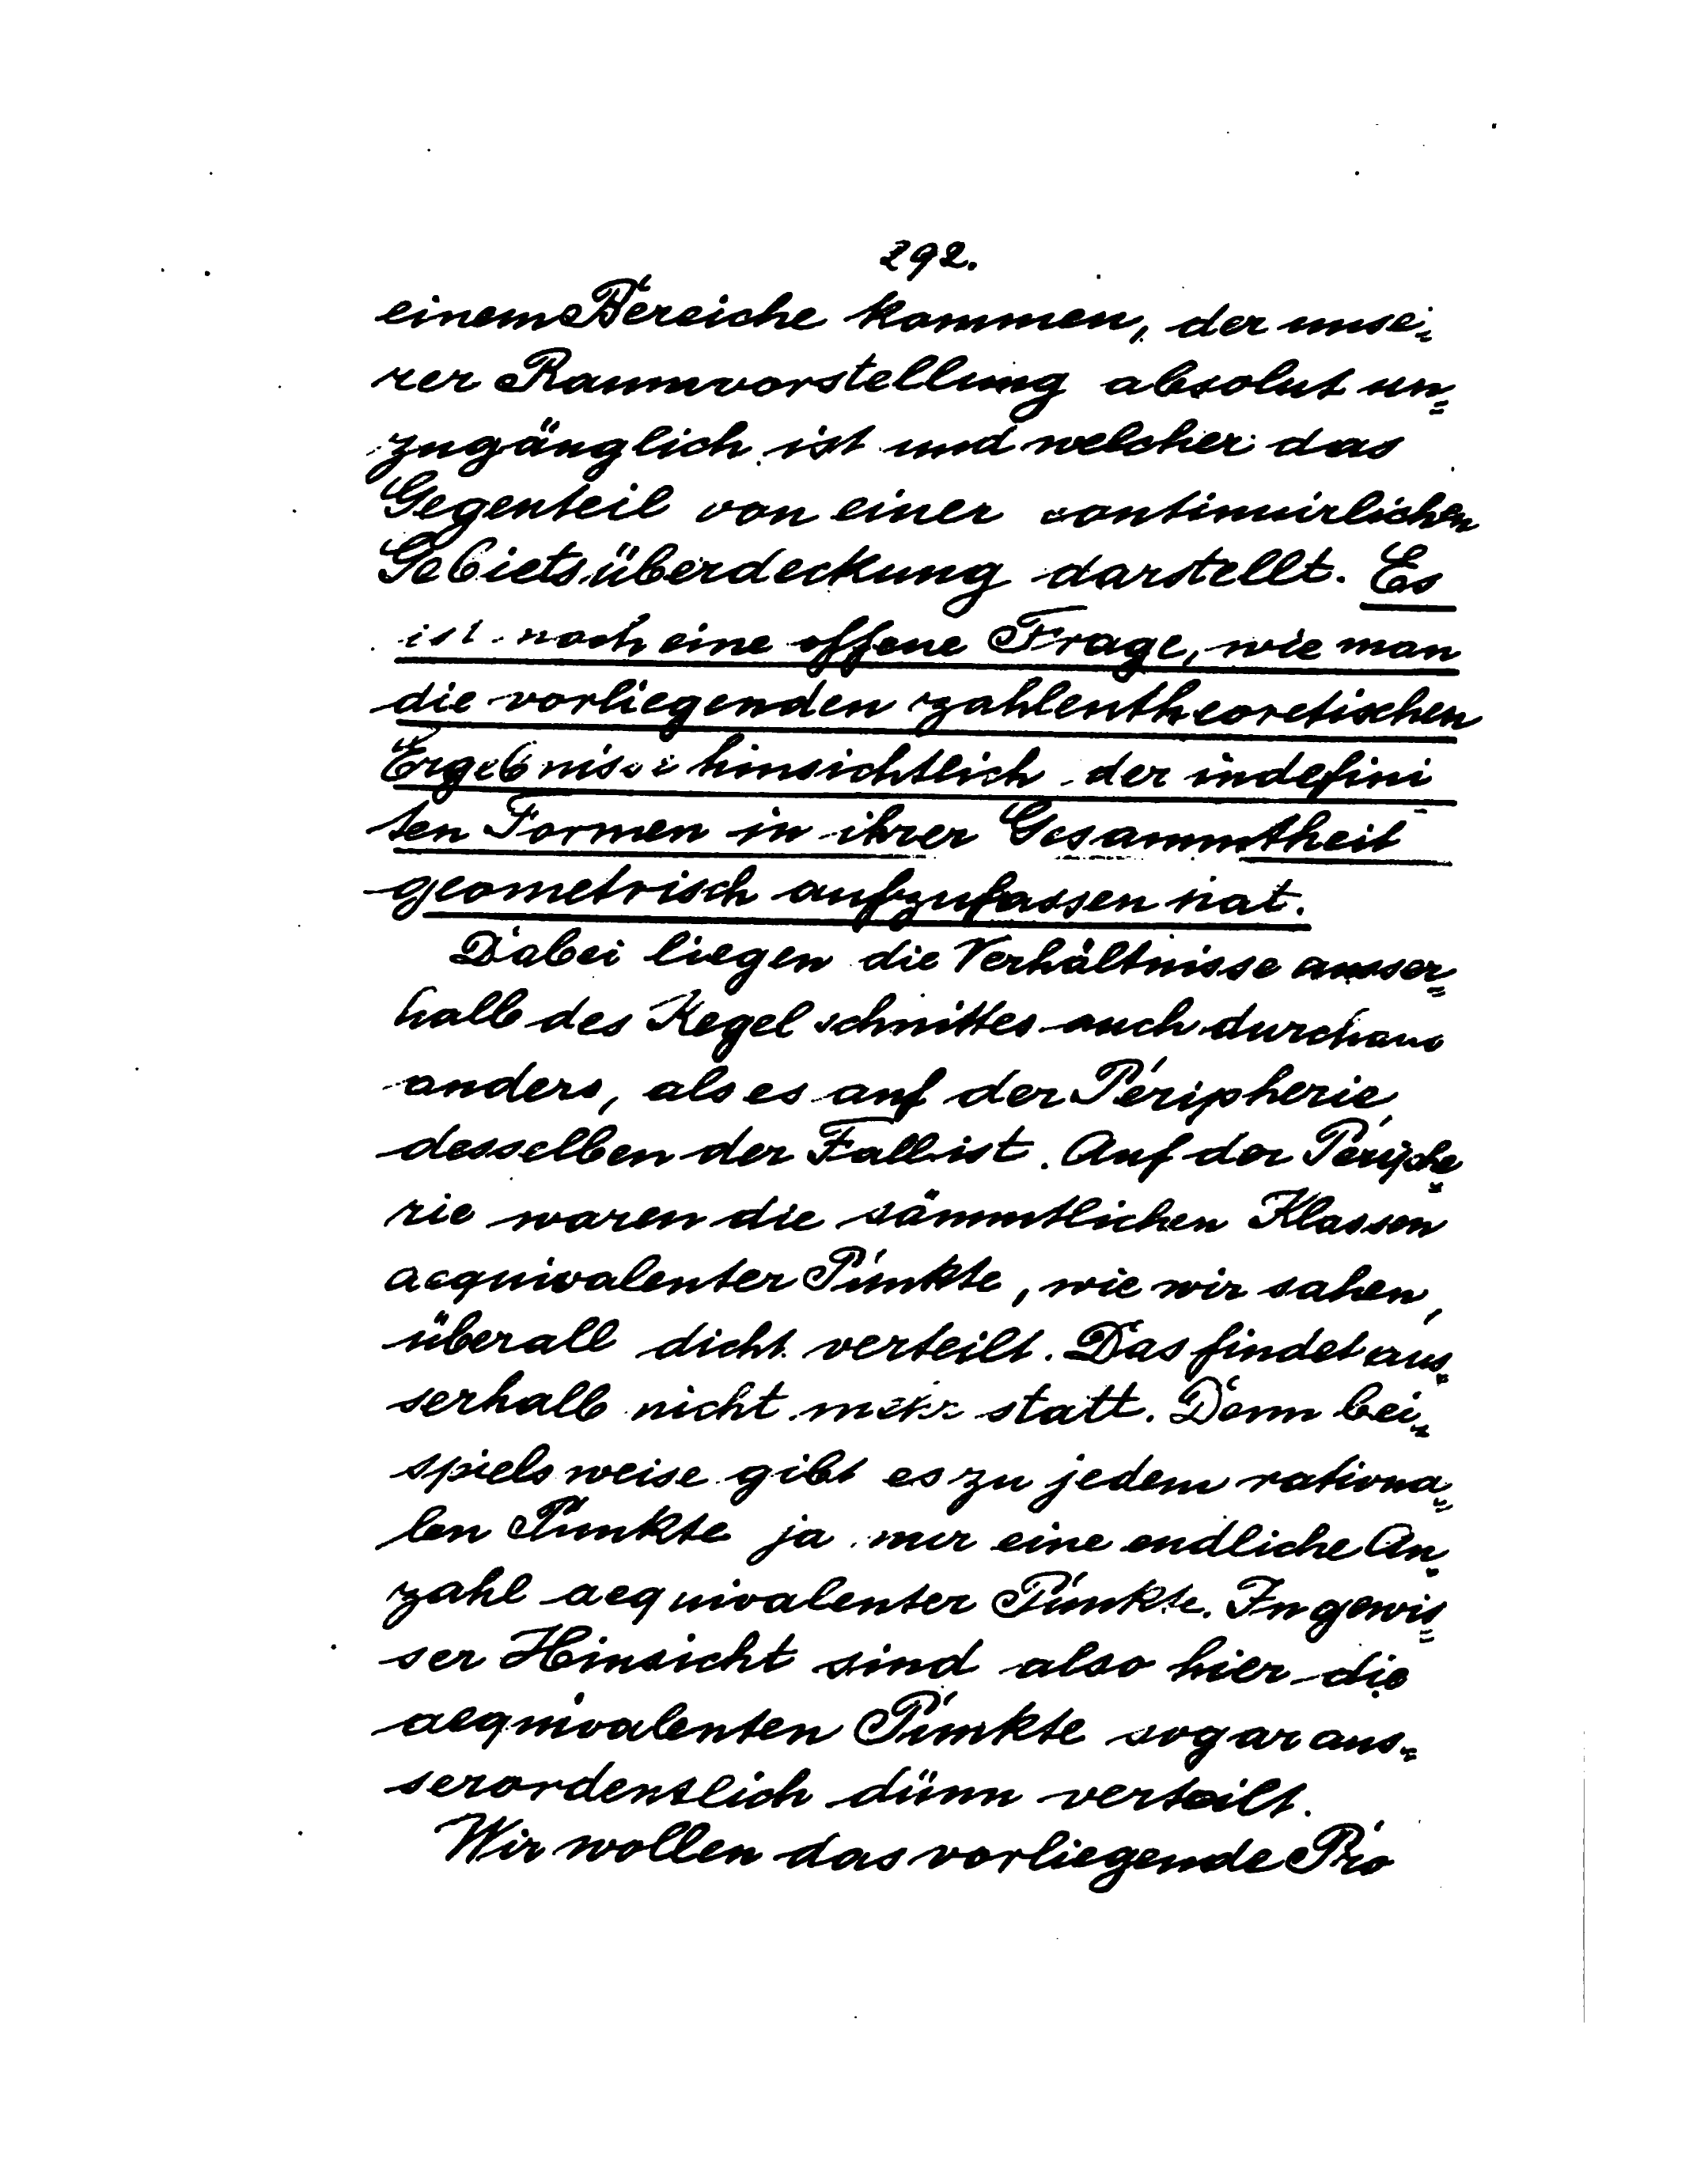 292.
einem Bereiche kommen, der unse-
rer Raumvorstellung absolut un=
zugänglich ist und welcher das
Gegenteil von einer continuirlichen
Gebietsüberdeckung darstellt. Es
ist noch eine offene Frage, wie man
die vorliegenden zahlentheoretischen
Ergebnisse hinsichtlich der indefini
ten Formen in ihrer Gesammtheit
geometrisch aufzufassen hat.
Dabei liegen die Verhältnisse ausser=
halb des Kegelschnittes auch durchaus
anders, als es auf der Peripherie
desselben der Fall ist. Auf der Periphe=
rie waren die sämmtlichen Klassen
aequivalenter Punkte, wie wir sahen,
überall dicht verteilt. Das findet aus=
serhalb nicht mehr statt. Denn bei=
spielsweise gibt es zu jedem rationa=
len Punkte ja nur eine endliche An=
zahl aequivalenter Punkte. In gewis=
ser Hinsicht sind also hier die
aequivalenten Punkte sogar aus=
serordentlich dünn verteilt.
Wir wollen das vorliegende Pro